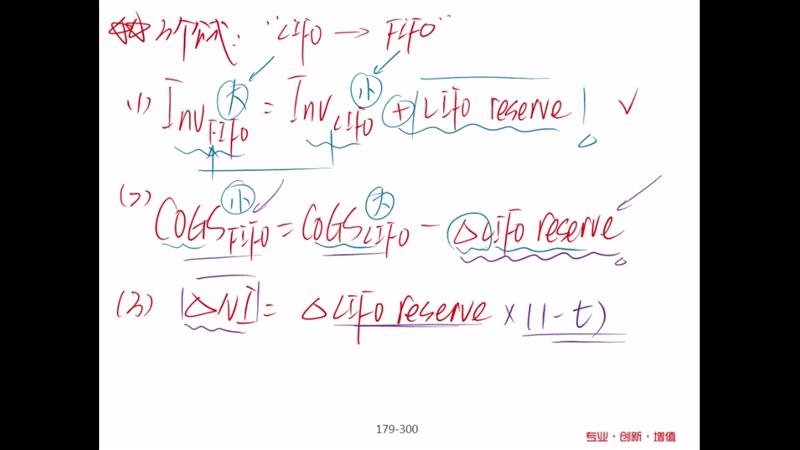 三个公式: "LIFO → FIFO"
大 小
(1) Inv FIFO = Inv LIFO + LIFO reserve
小 大
(2) COGS FIFO = COGS LIFO - △LIFO reserve
(3) △NI = △LIFO reserve × (1-t)
179-300
专业·创新·增值